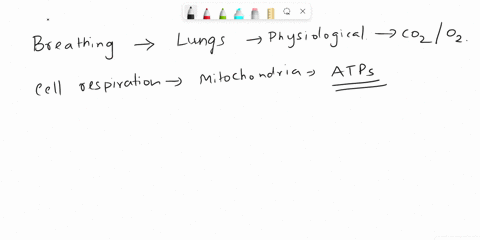 Breathing → Lungs → Physiological → CO2/O2.
Cell respiration → Mitochondria → ATPs